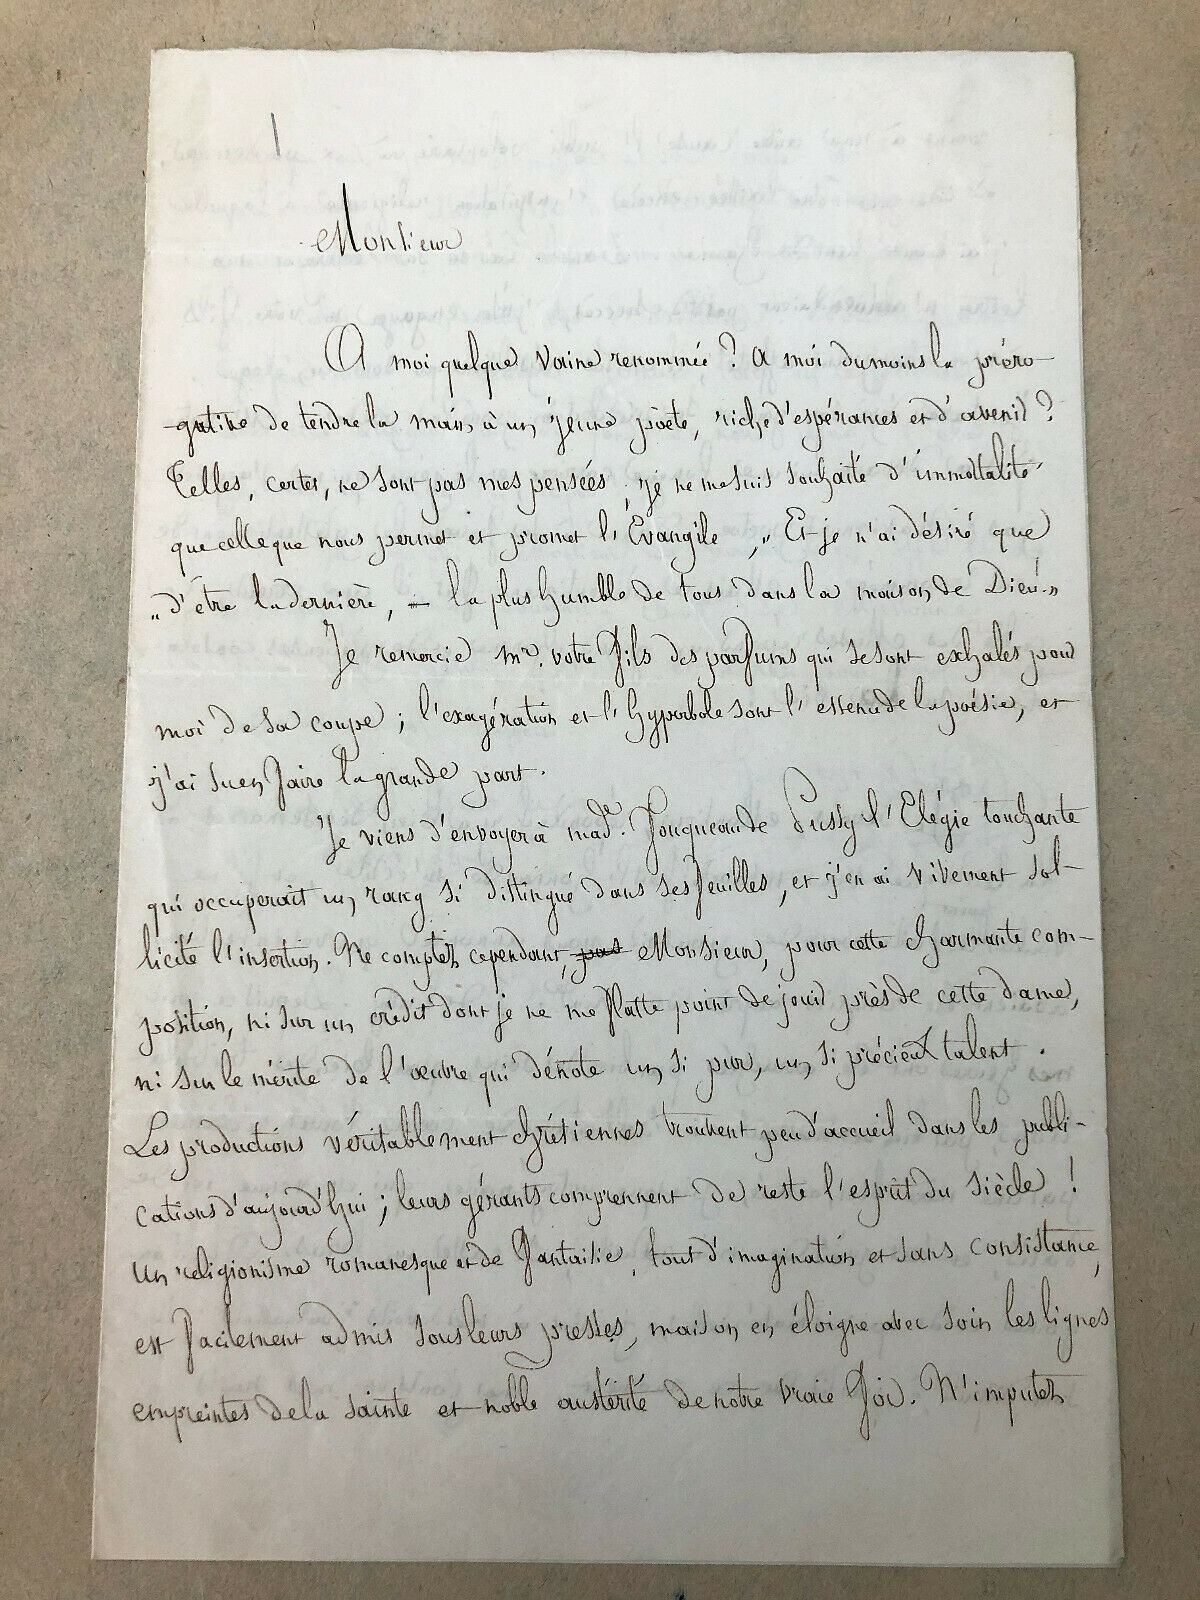 Monsieur
A moi quelque vaine renommée ? a moi du moins la préro-
-gative de tendre la main à un jeune poète, riche d'espérances et d'avenir ?
Telles, certes, ne sont pas mes pensées ; je ne me suis souhaité d'immortalité
que celle que nous permet et promet l'Évangile, „ Et je n'ai désiré que
„ d'être la dernière, — la plus humble de tous dans la maison de Dieu. „
Je remercie mr. votre fils des parfums qui se sont exhalés pour
moi de sa coupe ; l'exagération et l'hyperbole sont l'essence de la poésie, et
j'ai su en faire la grande part.
Je viens d'envoyer à made. Fouqueau de Pussy l'Elégie touchante
qui occuperait un rang si distingué dans ses feuilles, et j'en ai vivement sol-
licité l'insertion. Ne comptez cependant, pas Monsieur, pour cette charmante com-
position, ni sur un crédit dont je ne me flatte point de jouir près de cette dame,
ni sur le mérite de l'œuvre qui dénote un si pur, un si précieux talent.
Les productions véritablement chrétiennes trouvent peu d'accueil dans les publi-
cations d'aujourd'hui ; leurs gérants comprennent de reste l'esprit du siècle !
Un religionisme romanesque et de fantaisie, tout d'imagination et sans consistance,
est facilement admis sous leurs presses, mais on en éloigne avec soin les lignes
empreintes de la sainte et noble austérité de notre vraie foi. N'imputez